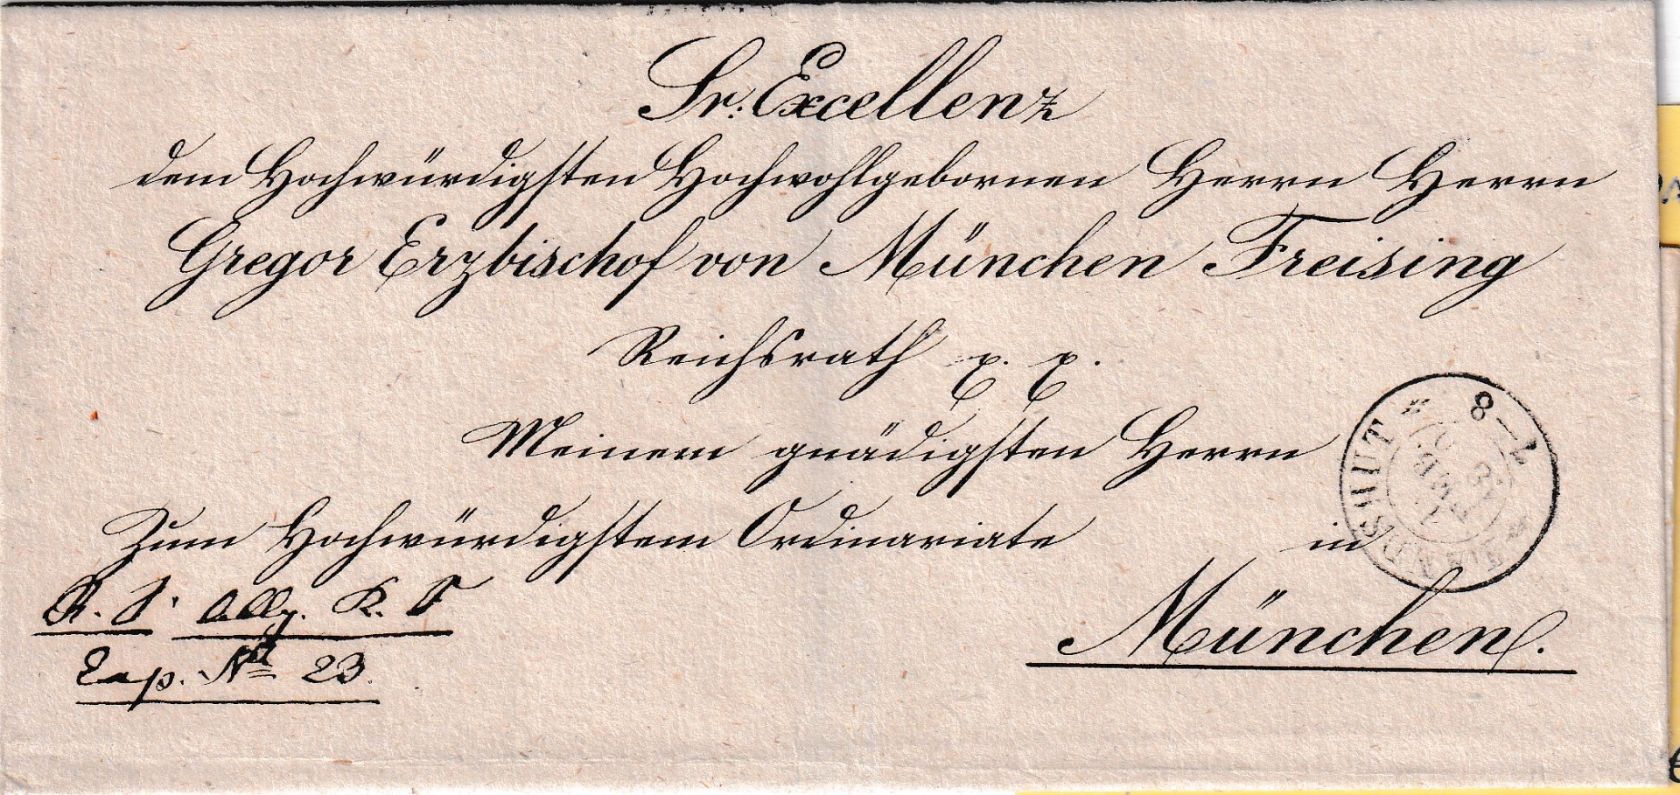 Sr. Excellenz
dem Hochwürdigsten Hochwohlgebornen Herrn Herrn
Gregor Erzbischof von München Freising
Reichsrath p. p.
Meinem gnädigsten Herrn
Zum Hochwürdigstem Ordinariate in
München.
R. S. allg. K. S
Exp. No 23.
LANDSHUT
FEBR.